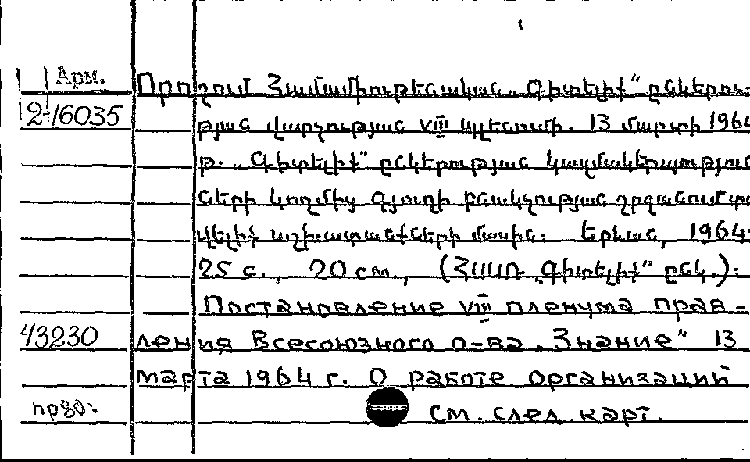 Арм.
2-16035
Որոշում Համամիութենական „Գիտելիք" ընկերու-
թյան վարչության VIII պլենումի. 13 մարտի 1964
թ. „Գիտելիք" ընկերության կազմակերպություն
ների կողմից գյուղի բնակչության շրջանում տա
վելիք աշխատանքների մասին: Երևան, 1964.
25 с., 20 см., (ՀՍՍՌ „Գիտելիք" ընկ.):
Постановление VIII пленума прав-
43230
ления Всесоюзного о-ва „Знание" 13
марта 1964 г. О работе организаций
См. след. карт.